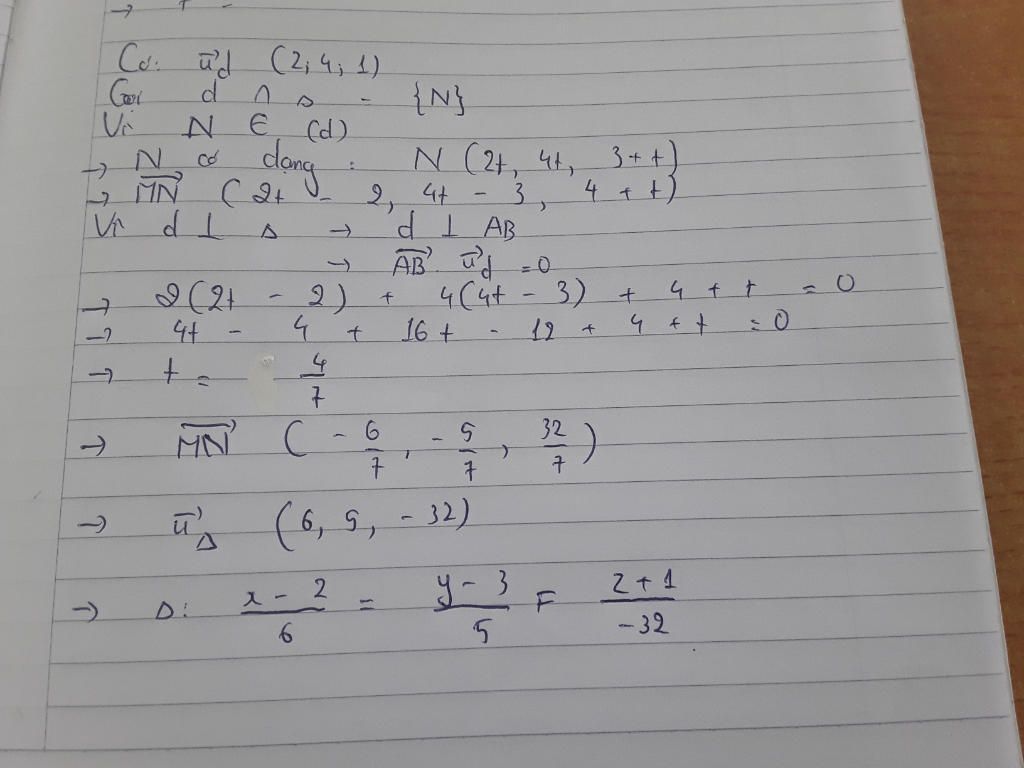 Có: u⃗d (2; 4; 1)
Gọi d ∩ Δ = {N}
Vì N ∈ (d)
→ N có dạng : N (2t, 4t, 3 + t)
→ MN⃗ (2t - 2, 4t - 3, 4 + t)
Vì d ⊥ Δ → d ⊥ AB
→ AB⃗ . u⃗d = 0
→ 2(2t - 2) + 4(4t - 3) + 4 + t = 0
→ 4t - 4 + 16t - 12 + 4 + t = 0
→ t = 4/7
→ MN⃗ ( - 6/7, - 5/7, 32/7 )
→ u⃗Δ (6, 5, - 32)
→ Δ: (x - 2)/6 = (y - 3)/5 = (z + 1)/-32